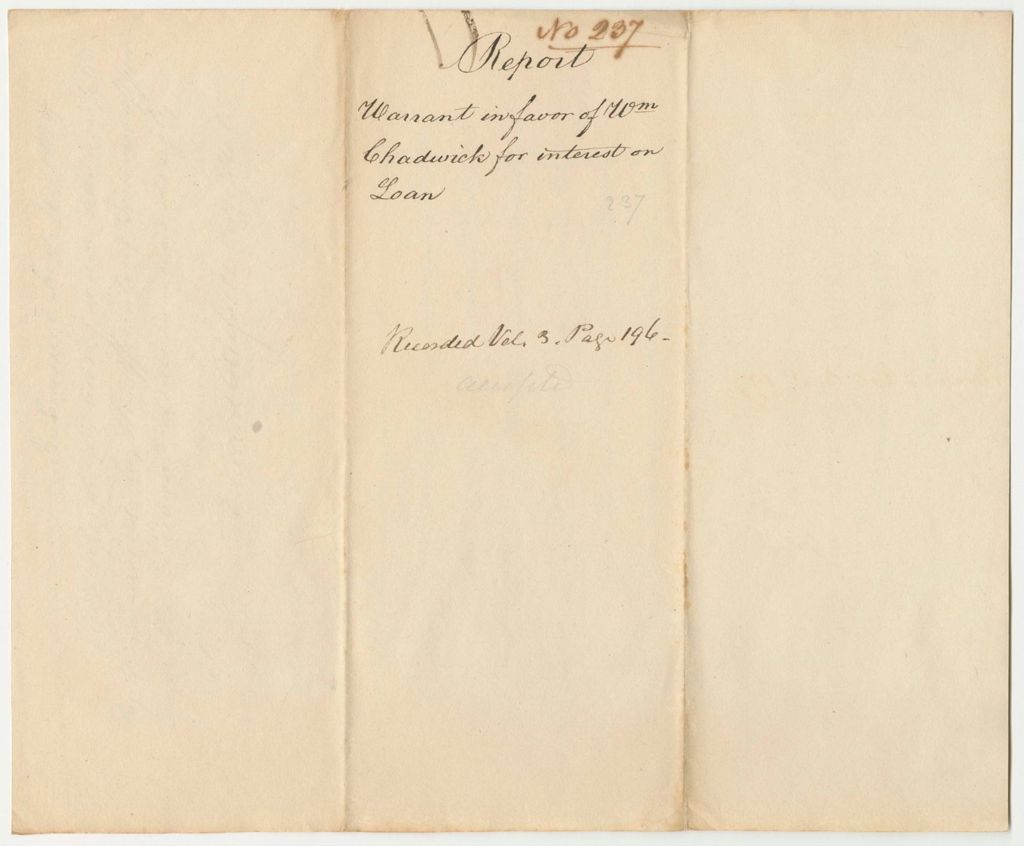 No 237
Report
Warrant in favor of Wm
Chadwick for interest on
Loan
237
Recorded Vol. 3. Page 196-
accepted